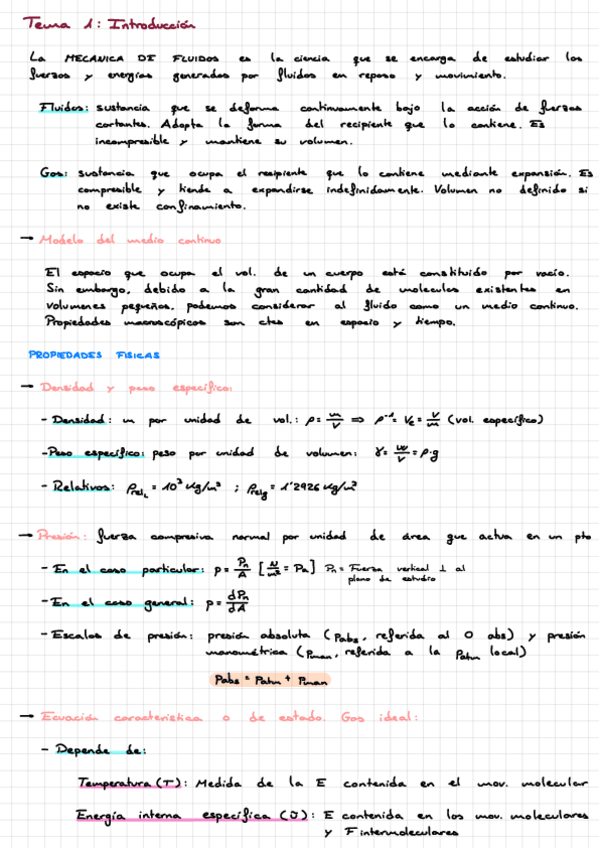 Tema 1: Introducción
La MECANICA DE FLUIDOS es la ciencia que se encarga de estudiar las
fuerzas y energías generados por fluidos en reposo y movimiento.
Fluidos: sustancia que se deforma continuamente bajo la acción de fuerzas
cortantes. Adopta la forma del recipiente que lo contiene. Es
incompresible y mantiene su volumen.
Gas: sustancia que ocupa el recipiente que lo contiene mediante expansión. Es
compresible y tiende a expandirse indefinidamente. Volumen no definido si
no existe confinamiento.
→ Modelo del medio continuo
El espacio que ocupa el vol. de un cuerpo está constituido por vacío.
Sin embargo, debido a la gran cantidad de moleculas existentes en
volumenes pequeños, podemos considerar al fluido como un medio continuo.
Propiedades macroscópicas son ctes en espacio y tiempo.
PROPIEDADES FISICAS
→ Densidad y peso específico:
- Densidad: m por unidad de vol.: ρ = m/V ⇒ ρ⁻¹ = Ve = V/m (vol. específico)
- Peso específico: peso por unidad de volumen: γ = W/V = ρ·g
- Relativos: ρrelL = 10³ kg/m³ ; ρrelg = 1'2926 kg/m³
→ Presión: fuerza compresiva normal por unidad de área que actua en un pto
- En el caso particular: p = Pn/A [N/m² = Pa] Pn = Fuerza vertical ⊥ al
plano de estudio
- En el caso general: p = dPn/dA
- Escalas de presión: presión absoluta (Pabs, referida al 0 abs) y presión
manométrica (Pman, referida a la Patm local)
Pabs = Patm + Pman
→ Ecuación característica o de estado. Gas ideal:
- Depende de:
Temperatura (T): Medida de la E contenida en el mov. molecular
Energía interna específica (Û): E contenida en los mov. moleculares
y F intermoleculares